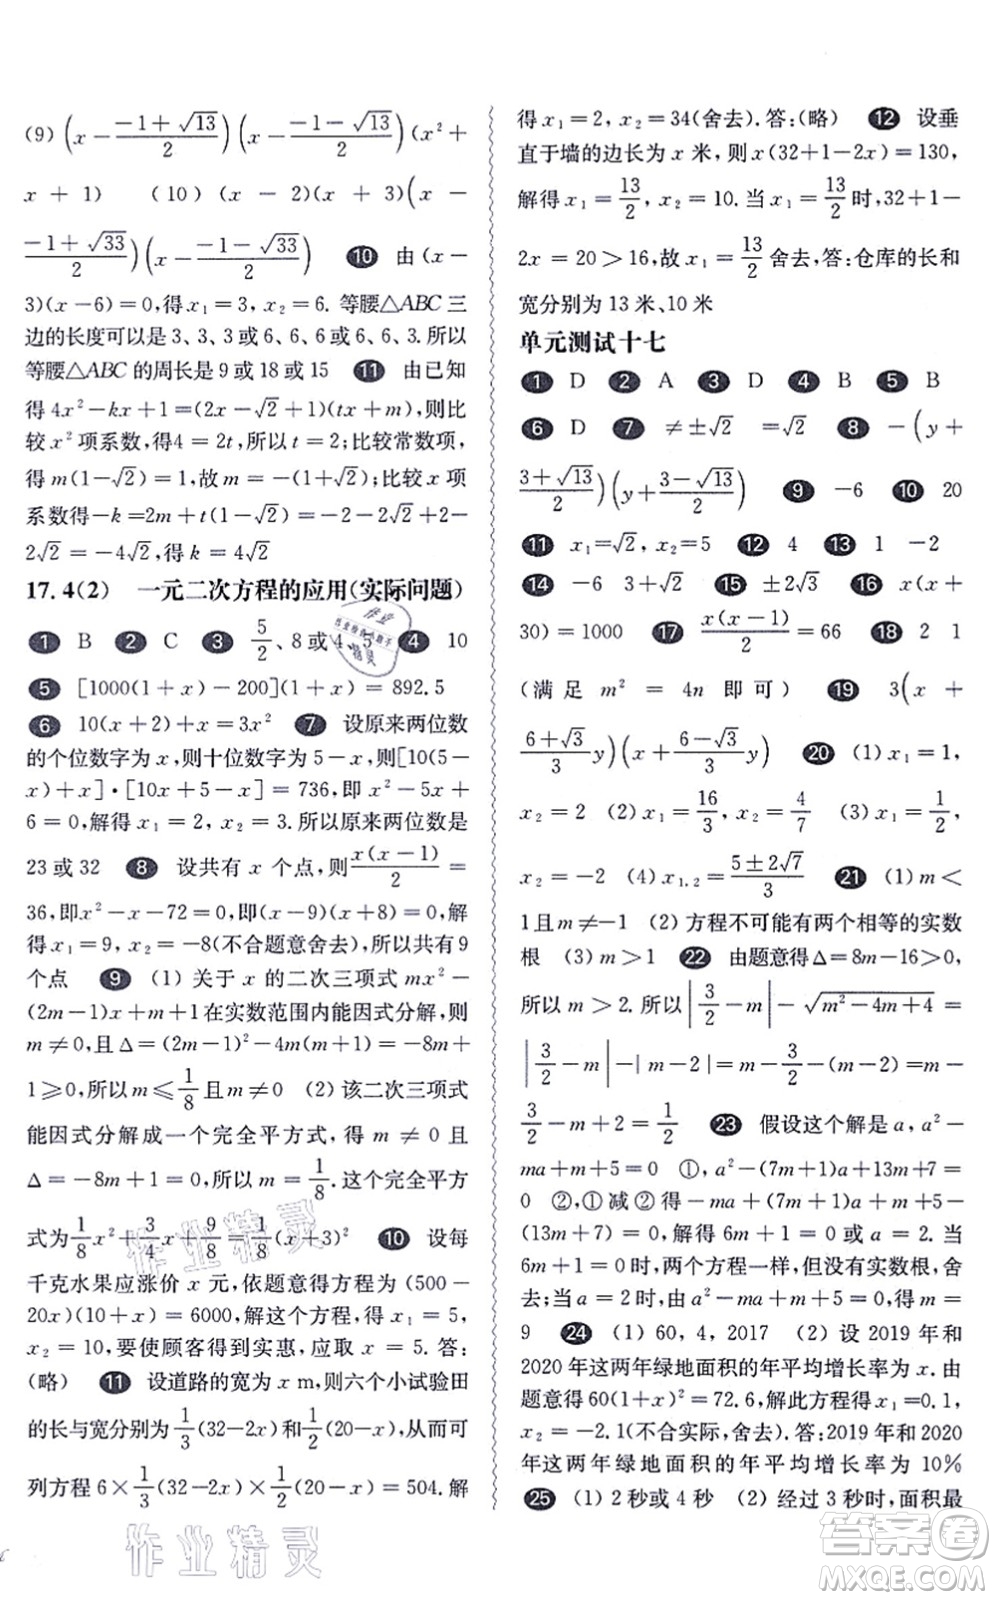 (9) (x − (−1+√13)/2)(x − (−1−√13)/2)(x²+
x + 1) (10) (x − 2)(x + 3)(x −
(−1+√33)/2)(x − (−1−√33)/2) 10 由(x −
3)(x−6)=0,得 x₁=3, x₂=6. 等腰△ABC三
边的长度可以是 3、3、3 或 6、6、6 或 6、6、3. 所以
等腰△ABC的周长是 9 或 18 或 15 11 由已知
得 4x²−kx+1=(2x−√2+1)(tx+m),则比
较 x² 项系数,得4=2t,所以 t=2;比较常数项,
得 m(1−√2)=1,故 m=−(1+√2);比较 x 项
系数得−k=2m+t(1−√2)=−2−2√2+2−
2√2=−4√2,得 k=4√2
17.4(2) 一元二次方程的应用(实际问题)
1 B 2 C 3 5/2、8或4、5 4 10
5 [1000(1+x)−200](1+x)=892.5
6 10(x+2)+x=3x² 7 设原来两位数
的个位数字为 x,则十位数字为 5−x,则[10(5−
x)+x]·[10x+5−x]=736,即 x²−5x+
6=0,解得 x₁=2, x₂=3.所以原来两位数是
23 或 32 8 设共有 x 个点,则 x(x−1)/2 =
36,即x²−x−72=0,即(x−9)(x+8)=0,解
得 x₁=9, x₂=−8(不合题意舍去),所以共有9
个点 9 (1) 关于 x 的二次三项式 mx²−
(2m−1)x+m+1在实数范围内能因式分解,
则 m≠0,且 Δ=(2m−1)²−4m(m+1)=−8m+
1≥0,所以 m≤1/8且 m≠0 (2) 该二次三项式
能因式分解成一个完全平方式,得 m ≠ 0 且
Δ=−8m+1=0,所以 m=1/8.这个完全平方
式为 1/8x²+3/4x+9/8=1/8(x+3)² 10 设每
千克水果应涨价 x 元,依题意得方程(500−
20x)(10+x)=6000,解这个方程,得 x₁=5,
x₂=10,要使顾客得到实惠,应取 x=5.答:
(略) 11 设道路的宽为 x m,则六个小试验田
的长与宽分别为 1/3(32−2x)和 1/2(20−x),从而可
列方程 6×1/3(32−2x)×1/2(20−x)=504.解
得 x₁=2, x₂=34(舍去).答:(略) 12 设垂
直于墙的边长为 x 米,则 x(32+1−2x)=130,
解得 x₁=13/2, x₂=10.当 x₁=13/2时,32+1−
2x=20>16,故 x₁=13/2舍去,答:仓库的长和
宽分别为 13 米、10 米
单元测试十七
1 D 2 A 3 D 4 B 5 B
6 D 7 ≠±√2 =√2 8 −(y+
(3+√13)/2)(y+(3−√13)/2) 9 −6 10 20
11 x₁=√2, x₂=5 12 4 13 1 −2
14 −6 3+√5 15 ±√3 16 x(x+
30)=1000 17 x(x−1)/2=66 18 2 1
(满足 m² = 4n 即可) 19 3(x +
(6+√3)/3 y)(x+(6−√3)/3 y) 20 (1) x₁=1,
x₂=2 (2) x₁=16/3, x₂=4/7 (3) x₁=1/2,
x₂=−2 (4) x₁.₂=(5±2√7)/3 21 (1) m<
1且m≠−1 (2) 方程不可能有两个相等的实数
根 (3) m>1 22 由题意得Δ=8m−16>0,
所以 m>2. |3/2−m|−√(m²−4m+4)=
|3/2−m|−|m−2|=m−3/2−(m−2)=m−
3/2−m+2=1/2 23 假设这个解是 a, a²−
ma+m+5=0 ①,a²−(7m+1)a+13m+7
=0 ②,①减②得−ma+(7m+1)a+m+5−
(13m+7)=0,解得 6m+1=0 或 a=2. 当
6m+1=0时,两个方程一样,但没有实数根,舍
去;当 a=2时,由题意得 a²−ma+m+5=0,得 m=
9 24 (1) 60, 4, 2017 (2) 设 2019 年和
2020 年这两年绿地面积的年平均增长率为 x,由
题意得60(1+x)²=72.6,解此方程得 x₁=0.1,
x₂=−2.1(不合实际,舍去).答:2019年和2020
年这两年绿地面积的年平均增长率为 10%
25 (1) 2秒或4秒 (2) 经过 3 秒时,面积最
作业精灵
作业精灵
答案圈
MXQE.COM